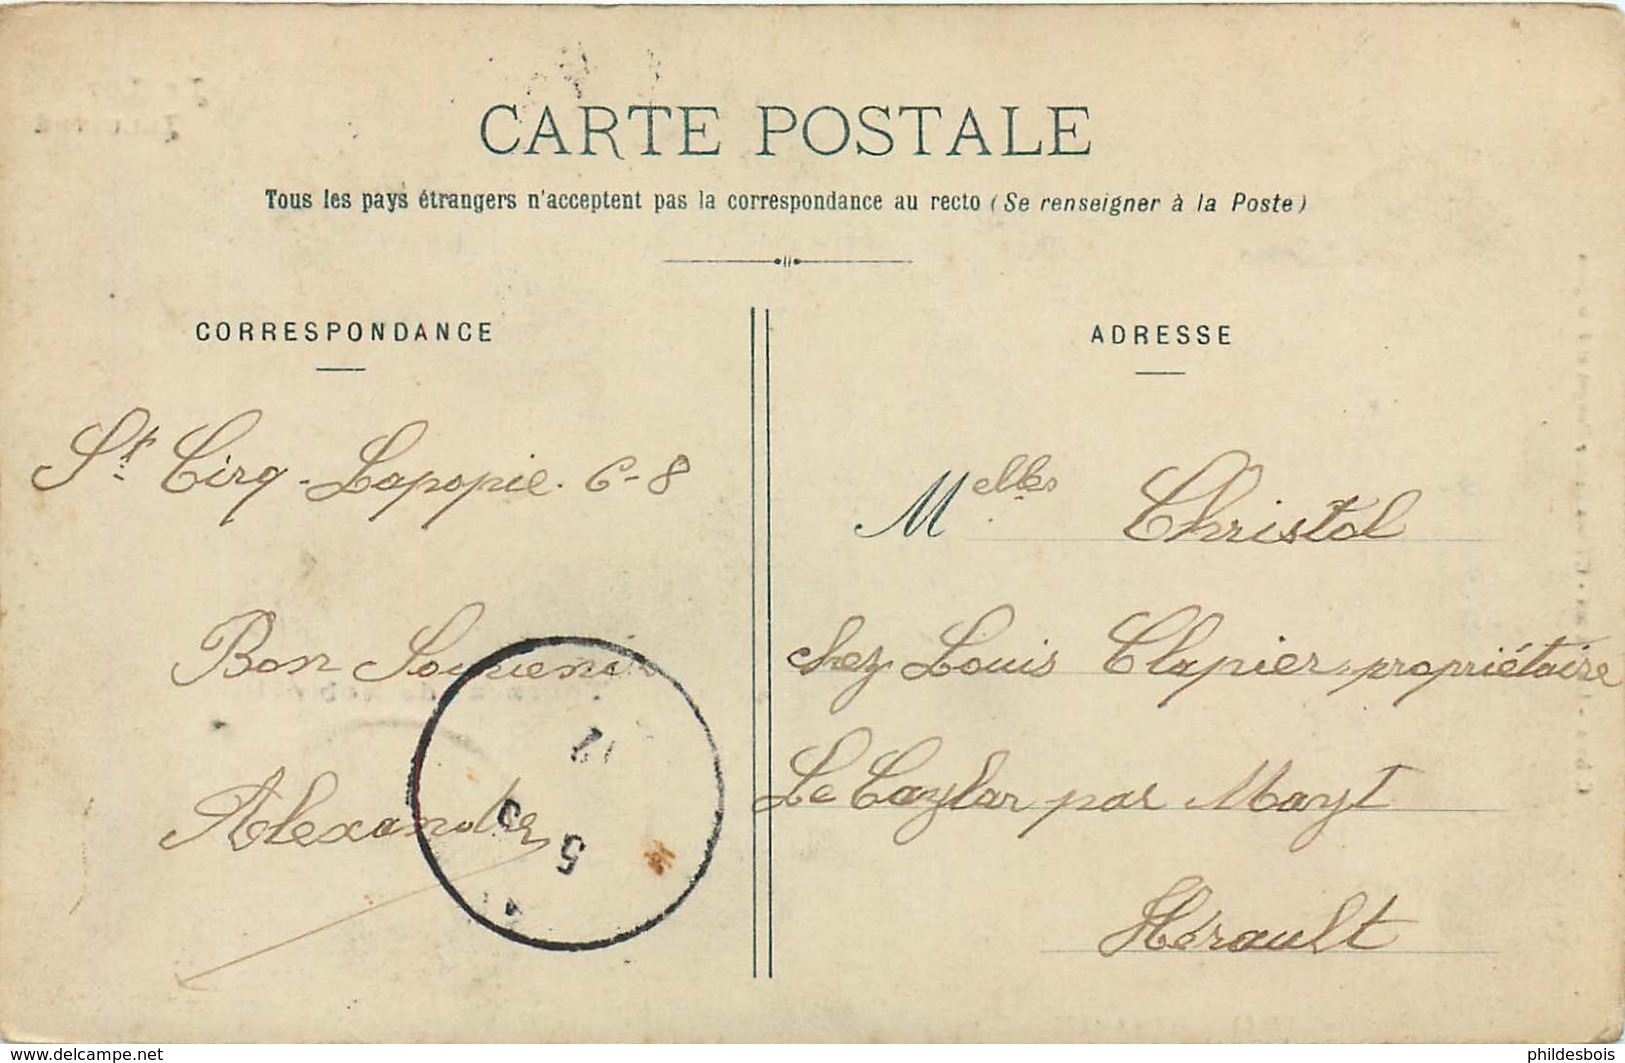 CARTE POSTALE
Tous les pays étrangers n'acceptent pas la correspondance au recto (Se renseigner à la Poste)
CORRESPONDANCE
St. Cirq-Lapopie. 6-8
Bon Souvenir
Alexandre
12
5
ADRESSE
Melles Christol
chez Louis Clapier, propriétaire
Le Caylar par Mayt
Hérault
www.delcampe.net
phildesbois